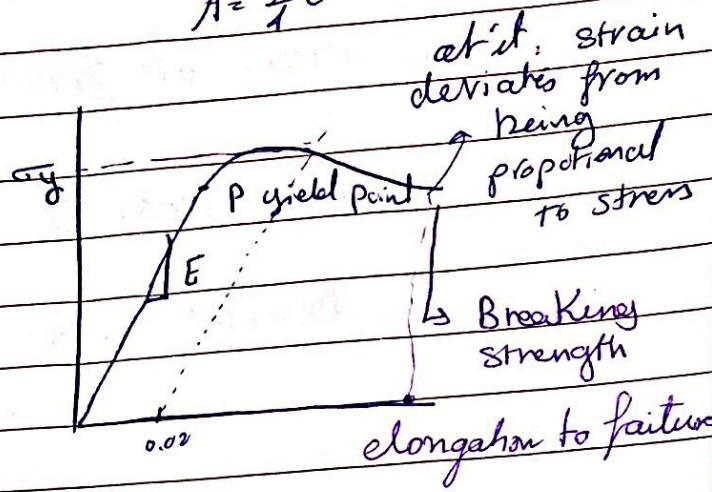 at it, strain
deviates from
being
propotional
to stress
σy
P yield point
E
Breaking
strength
0.02
elongation to failure